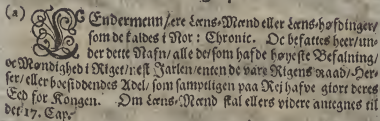 (a) LEndermenn/ere Leens-Mænd eller Leens-høfdinger/
som de kaldes i Nor: Chronic. Oc befattes heer/un-
der dette Nafn/alle de/som hafde høyeste Befalning/
oc Mondighed i Riget/nest Jarlen/enten de vare Rigens Raad/Her-
ser/eller boesiddendes Adel/som samptligen paa Rej hafve giort deres
Eed for Kongen. Om Leens-Mænd skal ellers videre antegnes til
det 17. Cap.